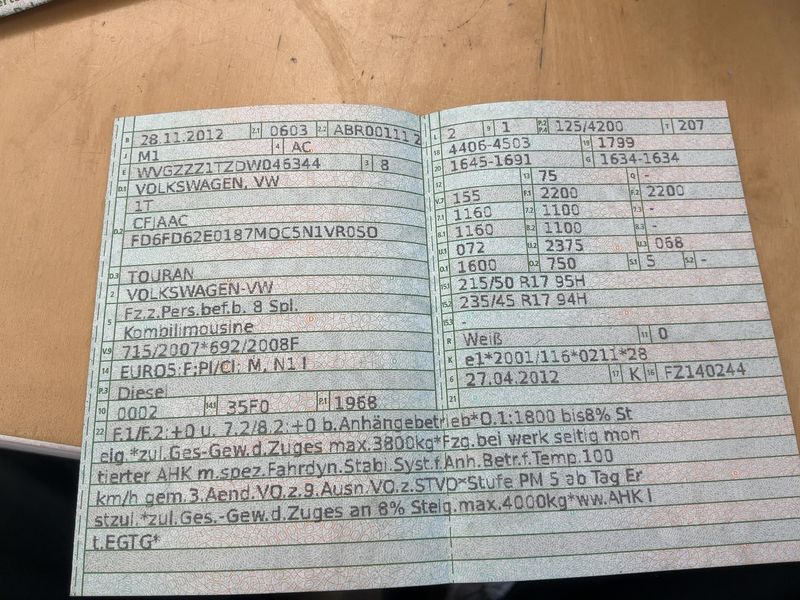 B 28.11.2012 2.1 0603 2.2 ABR00111 2
J M1 4 AC
E WVGZZZ1TZDW046344 3 8
D.1 VOLKSWAGEN, VW
1T
D.2 CFJAAC
FD6FD62E0187MQC5N1VR0SO
D.3 TOURAN
2 VOLKSWAGEN-VW
5 Fz.z.Pers.bef.b. 8 Spl.
Kombilimousine
V.9 715/2007*692/2008F
14 EURO5;F;PI/CI; M, N1 I
P.3 Diesel
10 0002 14.1 35F0 P.1 1968
L 2 9 1 P.2 P.4 125/4200 T 207
18 4406-4503 19 1799
20 1645-1691 G 1634-1634
12 - 13 75 Q -
V.7 155 F.1 2200 F.2 2200
7.1 1160 7.2 1100 7.3 -
8.1 1160 8.2 1100 8.3 -
U.1 072 U.2 2375 U.3 068
O.1 1600 O.2 750 S.1 5 S.2 -
15.1 215/50 R17 95H
15.2 235/45 R17 94H
15.3 -
R Weiß 11 0
K e1*2001/116*0211*28
6 27.04.2012 17 K 16 FZ140244
21
22 F.1/F.2:+0 u. 7.2/8.2:+0 b.Anhängebetrieb*O.1:1800 bis8% St
eig *zul.Ges-Gew.d.Zuges max.3800kg*Fzg.bei werk seitig mon
tierter AHK m.spez.Fahrdyn.Stabi.Syst.f.Anh.Betr.f.Temp.100
km/h gem.3.Aend.VO.z.9.Ausn.VO.z.STVO*Stufe PM 5 ab Tag Er
stzul.*zul.Ges.-Gew.d.Zuges an 8% Steig.max.4000kg*ww.AHK l
t.EGTG*